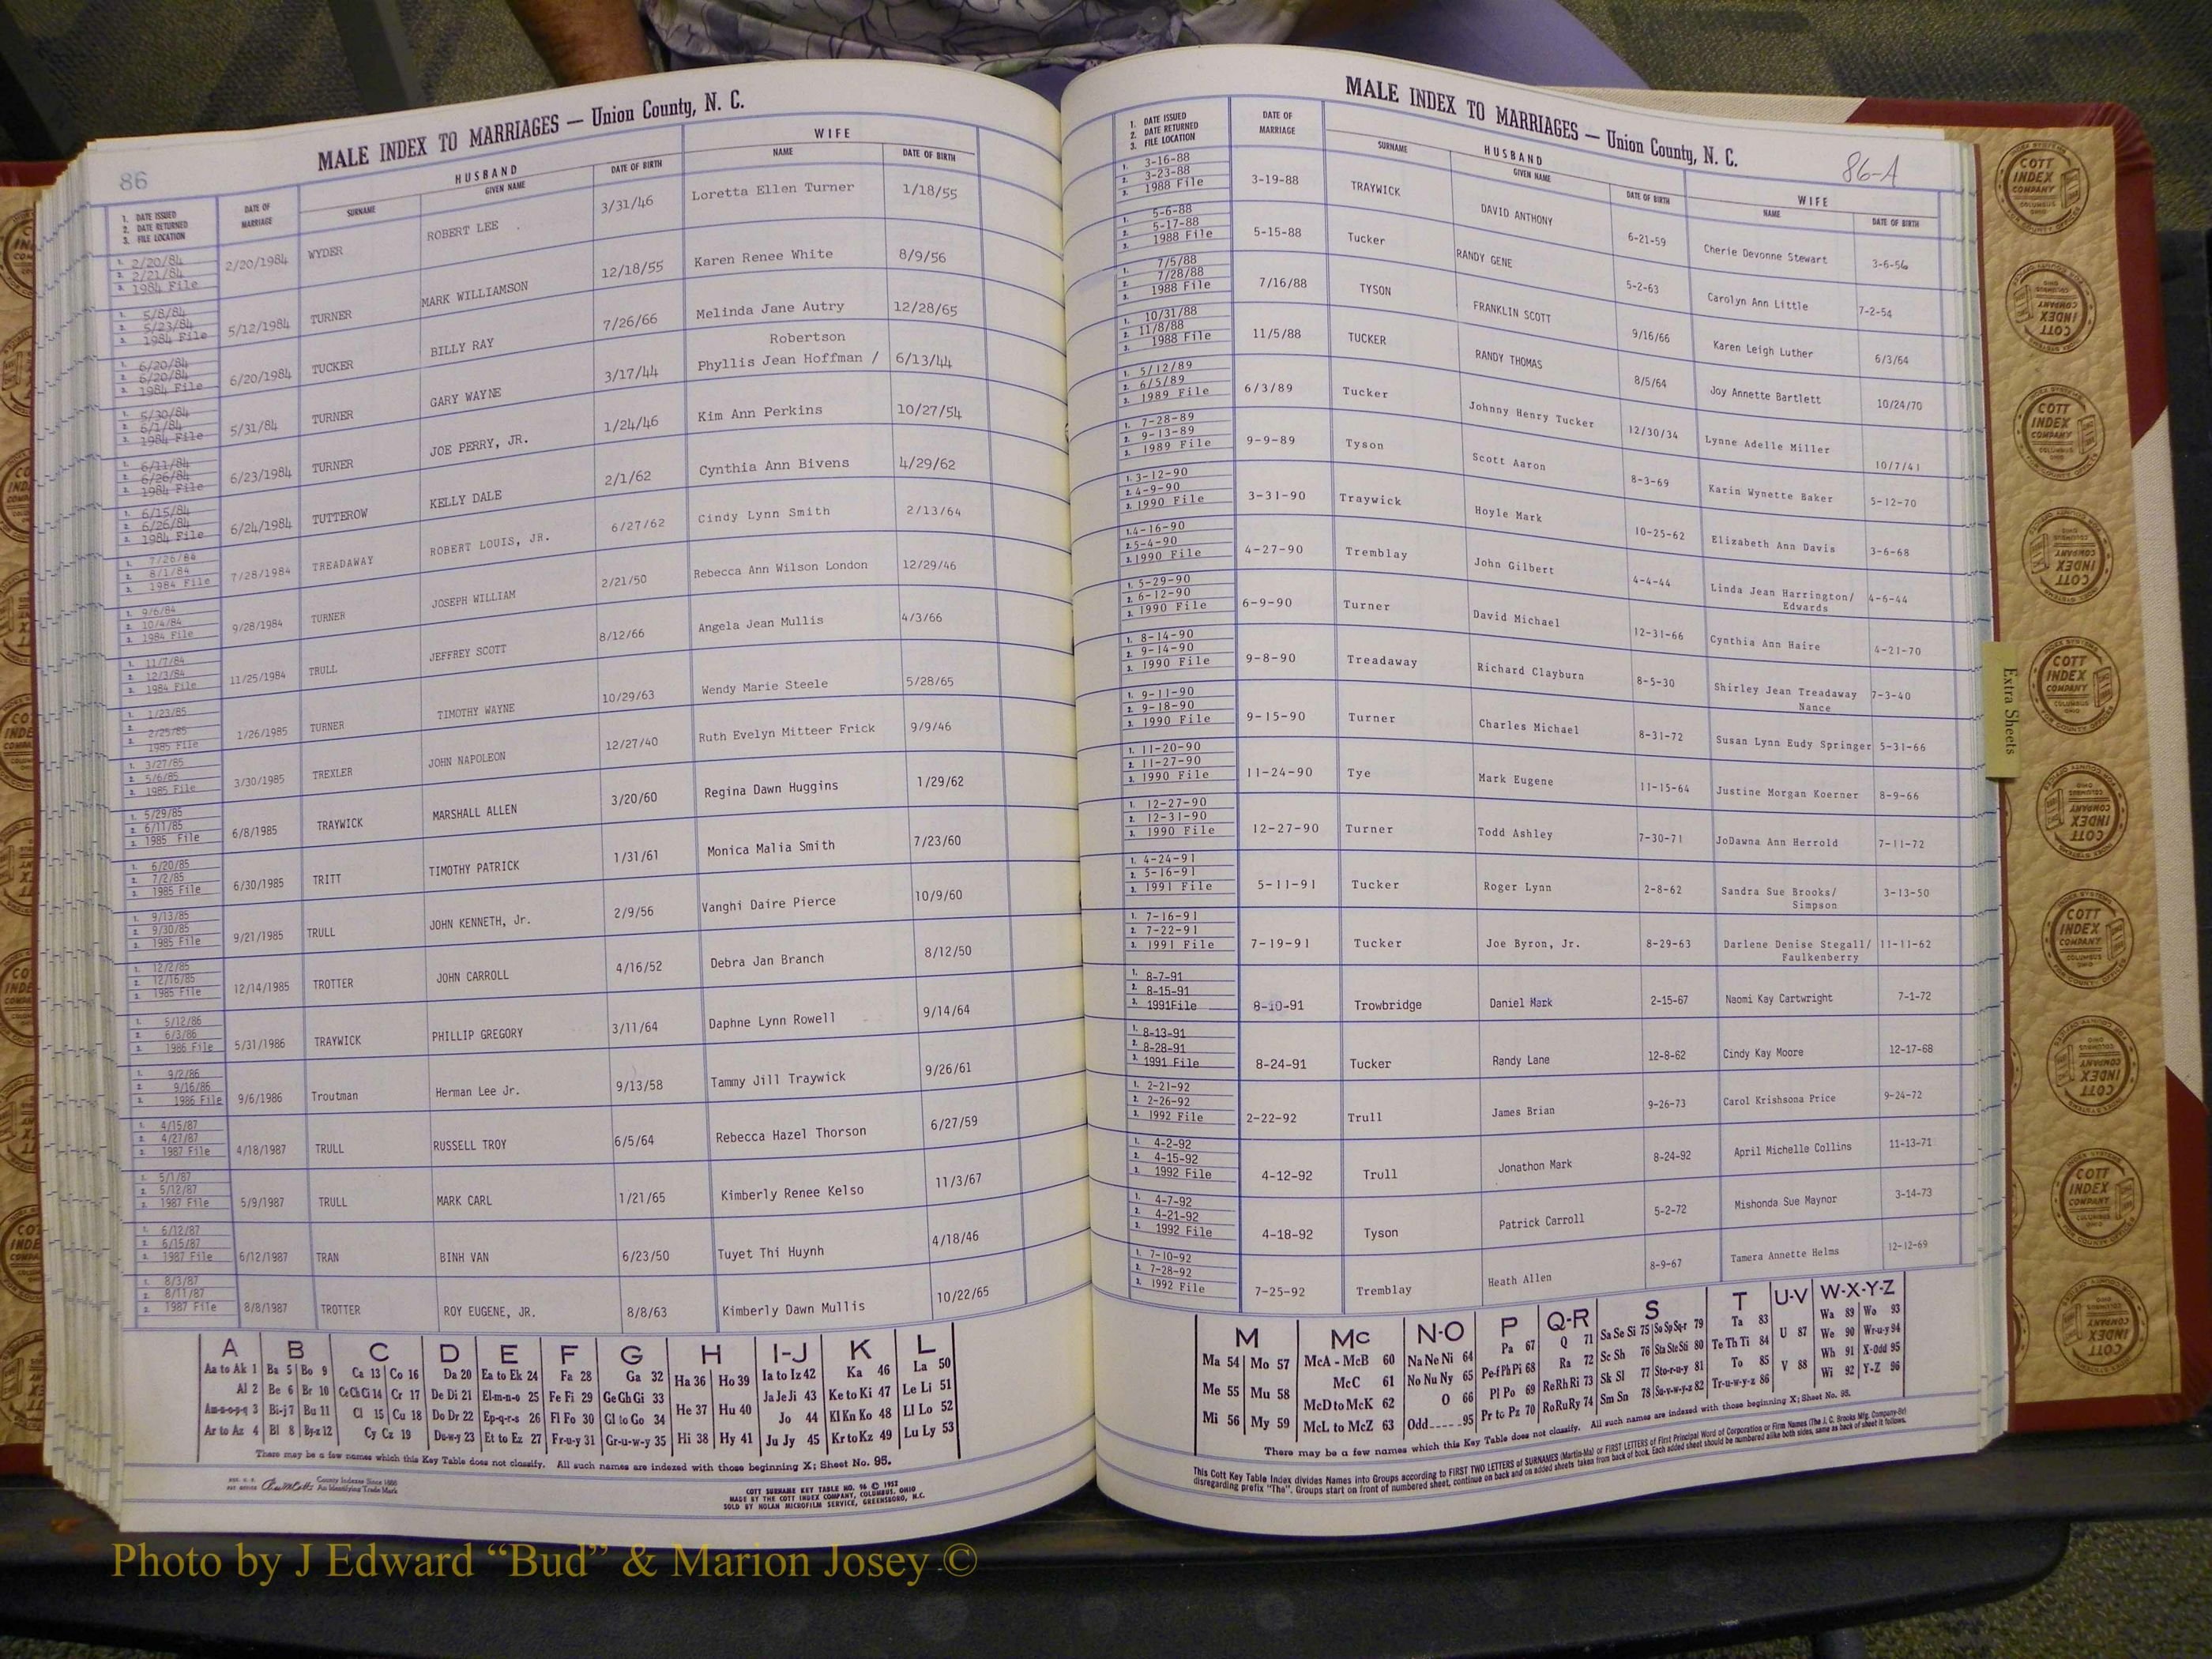 86
MALE INDEX TO MARRIAGES — Union County, N. C.
1. DATE ISSUED
2. DATE RETURNED
3. FILE LOCATION
DATE OF MARRIAGE
HUSBAND
SURNAME GIVEN NAME DATE OF BIRTH
WIFE
NAME DATE OF BIRTH
1. 2/20/84
2. 2/21/84
3. 1984 File
2/20/1984 WYDER ROBERT LEE 3/31/46 Loretta Ellen Turner 1/18/55
1. 5/8/84
2. 5/23/84
3. 1984 File
5/12/1984 TURNER MARK WILLIAMSON 12/18/55 Karen Renee White 8/9/56
1. 6/20/84
2. 6/20/84
3. 1984 File
6/20/1984 TUCKER BILLY RAY 7/26/66 Melinda Jane Autry 12/28/65
1. 5/30/84
2. 6/1/84
3. 1984 File
Robertson
5/31/84 TURNER GARY WAYNE 3/17/44 Phyllis Jean Hoffman / 6/13/44
1. 6/11/84
2. 6/26/84
3. 1984 File
6/23/1984 TURNER JOE PERRY, JR. 1/24/46 Kim Ann Perkins 10/27/54
1. 6/15/84
2. 6/26/84
3. 1984 File
6/24/1984 TUTTEROW KELLY DALE 2/1/62 Cynthia Ann Bivens 4/29/62
1. 7/26/84
2. 8/1/84
3. 1984 File
7/28/1984 TREADAWAY ROBERT LOUIS, JR. 6/27/62 Cindy Lynn Smith 2/13/64
1. 9/6/84
2. 10/4/84
3. 1984 File
9/28/1984 TURNER JOSEPH WILLIAM 2/21/50 Rebecca Ann Wilson London 12/29/46
1. 11/7/84
2. 12/3/84
3. 1984 File
11/25/1984 TRULL JEFFREY SCOTT 8/12/66 Angela Jean Mullis 4/3/66
1. 1/23/85
2. 2/25/85
3. 1985 File
1/26/1985 TURNER TIMOTHY WAYNE 10/29/63 Wendy Marie Steele 5/28/65
1. 3/27/85
2. 5/6/85
3. 1985 File
3/30/1985 TREXLER JOHN NAPOLEON 12/27/40 Ruth Evelyn Mitteer Frick 9/9/46
1. 5/29/85
2. 6/11/85
3. 1985 File
6/8/1985 TRAYWICK MARSHALL ALLEN 3/20/60 Regina Dawn Huggins 1/29/62
1. 6/20/85
2. 7/2/85
3. 1985 File
6/30/1985 TRITT TIMOTHY PATRICK 1/31/61 Monica Malia Smith 7/23/60
1. 9/13/85
2. 9/30/85
3. 1985 File
9/21/1985 TRULL JOHN KENNETH, Jr. 2/9/56 Vanghi Daire Pierce 10/9/60
1. 12/2/85
2. 12/16/85
3. 1985 File
12/14/1985 TROTTER JOHN CARROLL 4/16/52 Debra Jan Branch 8/12/50
1. 5/12/86
2. 6/3/86
3. 1986 File
5/31/1986 TRAYWICK PHILLIP GREGORY 3/11/64 Daphne Lynn Rowell 9/14/64
1. 9/2/86
2. 9/16/86
3. 1986 File
9/6/1986 Troutman Herman Lee Jr. 9/13/58 Tammy Jill Traywick 9/26/61
1. 4/15/87
2. 4/27/87
3. 1987 File
4/18/1987 TRULL RUSSELL TROY 6/5/64 Rebecca Hazel Thorson 6/27/59
1. 5/1/87
2. 5/12/87
3. 1987 File
5/9/1987 TRULL MARK CARL 1/21/65 Kimberly Renee Kelso 11/3/67
1. 6/12/87
2. 6/15/87
3. 1987 File
6/12/1987 TRAN BINH VAN 6/23/50 Tuyet Thi Huynh 4/18/46
1. 8/3/87
2. 8/11/87
3. 1987 File
8/8/1987 TROTTER ROY EUGENE, JR. 8/8/63 Kimberly Dawn Mullis 10/22/65
A B C D E F G H I-J K L
Aa to Ak 1 Ba 5 Bo 9 Ca 13 Co 16 Da 20 Ea to Ek 24 Fa 28 Ga 32 Ha 36 Ho 39 Ia to Iz 42 Ka 46 La 50
Al 2 Be 6 Br 10 Ce Ch Ci 14 Cr 17 De Di 21 El-m-n-o 25 Fe Fi 29 Ge Gh Gi 33 He 37 Hu 40 Ja Je Ji 43 Ke to Ki 47 Le Li 51
Am-n-o-p-q 3 Bi-j 7 Bu 11 Cl 15 Cu 18 Do Dr 22 Ep-q-r-s 26 Fl Fo 30 Gl to Go 34 Jo 44 Kl Kn Ko 48 Ll Lo 52
Ar to Az 4 Bl 8 By-z 12 Cy Cz 19 Du-w-y 23 Et to Ez 27 Fr-u-y 31 Gr-u-w-y 35 Hi 38 Hy 41 Ju Jy 45 Kr to Kz 49 Lu Ly 53
There may be a few names which this Key Table does not classify. All such names are indexed with those beginning X; Sheet No. 95.
County Indexes Since 1888
An Identifying Trade Mark
COTT SURNAME KEY TABLE NO. 96 © 1952
MADE BY THE COTT INDEX COMPANY, COLUMBUS, OHIO
SOLD BY NOLAN MICROFILM SERVICE, GREENSBORO, N.C.
MALE INDEX TO MARRIAGES — Union County, N. C.
86-A
1. DATE ISSUED
2. DATE RETURNED
3. FILE LOCATION
DATE OF MARRIAGE
HUSBAND
SURNAME GIVEN NAME DATE OF BIRTH
WIFE
NAME DATE OF BIRTH
1. 3-16-88
2. 3-23-88
3. 1988 File
3-19-88 TRAYWICK DAVID ANTHONY 6-21-59 Cherie Devonne Stewart 3-6-56
1. 5-6-88
2. 5-17-88
3. 1988 File
5-15-88 Tucker RANDY GENE 5-2-63 Carolyn Ann Little 7-2-54
1. 7/5/88
2. 7/28/88
3. 1988 File
7/16/88 TYSON FRANKLIN SCOTT 9/16/66 Karen Leigh Luther 6/3/64
1. 10/31/88
2. 11/8/88
3. 1988 File
11/5/88 TUCKER RANDY THOMAS 8/5/64 Joy Annette Bartlett 10/24/70
1. 5/12/89
2. 6/5/89
3. 1989 File
6/3/89 Tucker Johnny Henry Tucker 12/30/34 Lynne Adelle Miller 10/7/41
1. 7-28-89
2. 9-13-89
3. 1989 File
9-9-89 Tyson Scott Aaron 8-3-69 Karin Wynette Baker 5-12-70
1. 3-12-90
2. 4-9-90
3. 1990 File
3-31-90 Traywick Hoyle Mark 10-25-62 Elizabeth Ann Davis 3-6-68
1. 4-16-90
2. 5-4-90
3. 1990 File
4-27-90 Tremblay John Gilbert 4-4-44 Linda Jean Harrington/ 4-6-44
Edwards
1. 5-29-90
2. 6-12-90
3. 1990 File
6-9-90 Turner David Michael 12-31-66 Cynthia Ann Haire 4-21-70
1. 8-14-90
2. 9-14-90
3. 1990 File
9-8-90 Treadaway Richard Clayburn 8-5-30 Shirley Jean Treadaway 7-3-40
Nance
1. 9-11-90
2. 9-18-90
3. 1990 File
9-15-90 Turner Charles Michael 8-31-72 Susan Lynn Eudy Springer 5-31-66
1. 11-20-90
2. 11-27-90
3. 1990 File
11-24-90 Tye Mark Eugene 11-15-64 Justine Morgan Koerner 8-9-66
1. 12-27-90
2. 12-31-90
3. 1990 File
12-27-90 Turner Todd Ashley 7-30-71 JoDawna Ann Herrold 7-11-72
1. 4-24-91
2. 5-16-91
3. 1991 File
5-11-91 Tucker Roger Lynn 2-8-62 Sandra Sue Brooks/ 3-13-50
Simpson
1. 7-16-91
2. 7-22-91
3. 1991 File
7-19-91 Tucker Joe Byron, Jr. 8-29-63 Darlene Denise Stegall/ 11-11-62
Faulkenberry
1. 8-7-91
2. 8-15-91
3. 1991File
8-10-91 Trowbridge Daniel Mark 2-15-67 Naomi Kay Cartwright 7-1-72
1. 8-13-91
2. 8-28-91
3. 1991 File
8-24-91 Tucker Randy Lane 12-8-62 Cindy Kay Moore 12-17-68
1. 2-21-92
2. 2-26-92
3. 1992 File
2-22-92 Trull James Brian 9-26-73 Carol Krishsona Price 9-24-72
1. 4-2-92
2. 4-15-92
3. 1992 File
4-12-92 Trull Jonathon Mark 8-24-92 April Michelle Collins 11-13-71
1. 4-7-92
2. 4-21-92
3. 1992 File
4-18-92 Tyson Patrick Carroll 5-2-72 Mishonda Sue Maynor 3-14-73
1. 7-10-92
2. 7-28-92
3. 1992 File
7-25-92 Tremblay Heath Allen 8-9-67 Tamera Annette Helms 12-12-69
M Mc N-O P Q-R S T U-V W-X-Y-Z
Ma 54 Mo 57 McA - McB 60 Na Ne Ni 64 Pa 67 Q 71 Sa Se Si 75 So Sp Sq-r 79 Ta 83 U 87 Wa 89 Wo 93
Me 55 Mu 58 McC 61 No Nu Ny 65 Pe-f Ph Pi 68 Ra 72 Sc Sh 76 Sta Ste Sti 80 Te Th Ti 84 We 90 Wr-u-y 94
McD to McK 62 O 66 Pl Po 69 Re Rh Ri 73 Sk Sl 77 Sto-r-u-y 81 To 85 V 88 Wh 91 X-Odd 95
Mi 56 My 59 McL to McZ 63 Odd 95 Pr to Pz 70 Ro Ru Ry 74 Sm Sn 78 Su-v-w-y-z 82 Tr-u-w-y-z 86 Wi 92 Y-Z 96
There may be a few names which this Key Table does not classify. All such names are indexed with those beginning X; Sheet No. 95.
This Cott Key Table Index divides Names into Groups according to FIRST TWO LETTERS of SURNAMES (Martin-Ma) or FIRST LETTERS of First Principal Word of Corporation or Firm Names (The J. C. Brooks Mfg. Company-Br)
disregarding prefix "The". Groups start on front of numbered sheet, continue on back and on added sheets taken from back of book. Each added sheet should be numbered alike both sides, same as back of sheet it follows.
Extra Sheets
COTT INDEX COMPANY COLUMBUS OHIO
Photo by J Edward “Bud” & Marion Josey ©